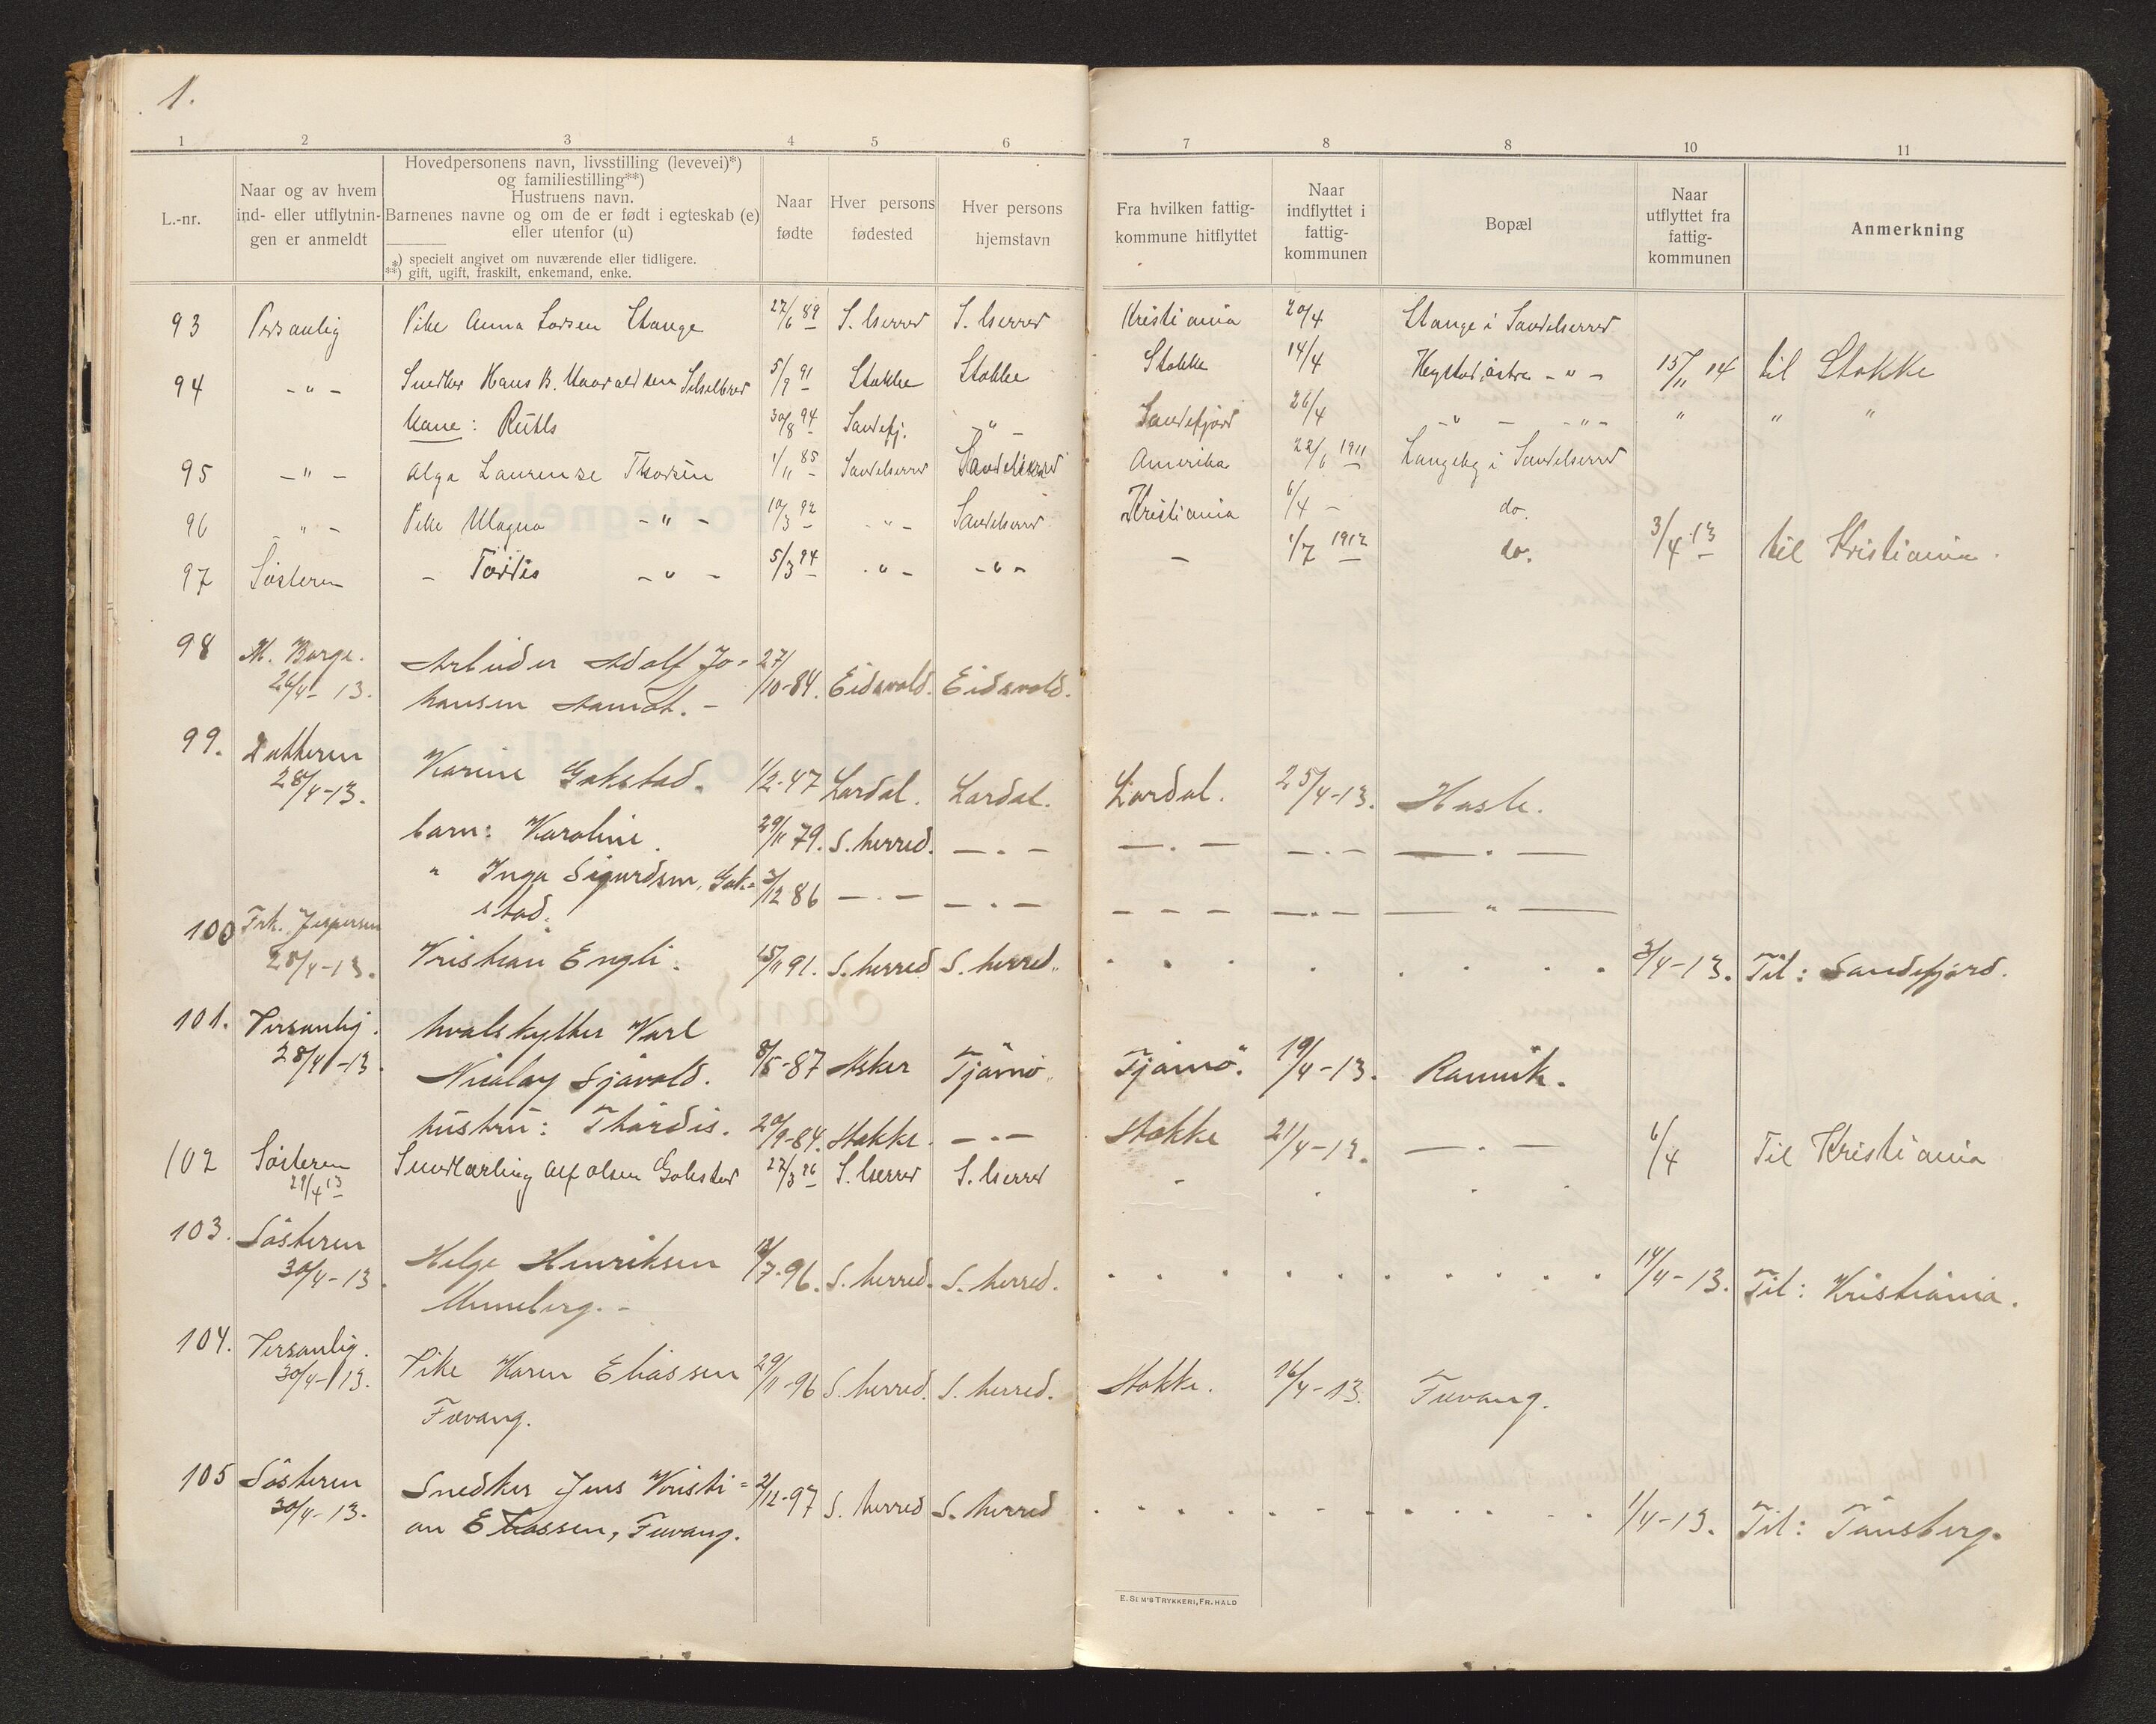 1.
1 2 3 4 5 6 7 8 8 10 11
L.-nr.
Naar og av hvem
ind- eller utflytnin-
gen er anmeldt
Hovedpersonens navn, livsstilling (levevei)*)
og familiestilling**)
Hustruens navn.
Barnenes navne og om de er født i egteskab (e)
eller utenfor (u)
*) specielt angivet om nuværende eller tidligere.
**) gift, ugift, fraskilt, enkemand, enke.
Naar
fødte
Hver persons
fødested
Hver persons
hjemstavn
Fra hvilken fattig-
kommune hitflyttet
Naar
indflyttet i
fattig-
kommunen
Bopæl
Naar
utflyttet fra
fattig-
kommunen
Anmerkning
93 Personlig Pike Anna Larsen Stange 27/6 89 S. herred S. herred Kristiania 20/4 Stange i Sandeherred
94 - " - Snedker Hans B. 5/9 91 Stokke Stokke Stokke 14/4 - " - 15/11 14 til Stokke
Kone: Ruth 30/8 94 Sandefj. - " - Sandefjord 26/4 - " - - " - " " "
95 - " - Alga Laurense Thorsen 1/11 85 Sandeherred Sandeherred Amerika 22/6 1911 i Sandeherred
96 - " - Pike Magna - " - 10/3 92 - " - Sandeherred Kristiania 6/4 - do.
97 Søsteren - Tordis - " - 5/3 94 - " - - " - - 1/7 1912 do. 3/4 -13 til Kristiania.
98 M. Borge. Arbeider Adolf Jo- 27/10-84. Eidsvold. Eidsvold.
26/4-13. hansen
99. Datteren Karine Gokstad. 1/2-47 Lardal. Lardal. Lardal. 25/4-13. Hasle.
28/4-13.
barn: Karoline. 29/11 79. S. herred. - . - - . - - . - - . -
" Inga Sigurdsen, Gok- 3/12 86 - . - - . - - - - - . - - " -
stad.
100 Frk. Jespersen Kristian Engli. 15/11 91. S. herred S. herred. 3/4-13. Til: Sandefjord.
28/4-13.
101. Personlig. hvalskytter Karl
28/4-13. Nicolay Sjøvold. 8/5-87 Asker Tjømø Tjømø. 19/4-13. Ranvik.
hustru: Thordis. 20/9-84. Stokke. - . - Stokke 21/4-13. - . -
102 Søsteren Smedlærling Alf Olsen Gokstad 27/3 96 S. herred S. herred - 6/4 Til Kristiania
29/4 13
103. Søsteren Helge Henriksen 12/7-96. S. herred. S. herred. 14/4-13. Til: Kristiania.
30/4-13. Unneberg. -
104. Personlig. Pike Karen Eliassen 29/11-96 S. herred. S. herred. Stokke. 16/4-13. Fevang.
30/4-13. Fevang.
105 Søsteren Snedker Jens Kristi- 2/12-97 S. herred S. herred 1/4-13. Til: Tønsberg.
30/4-13. an Eliassen, Fevang.
E. SEM'S TRYKKERI, FR. HALD